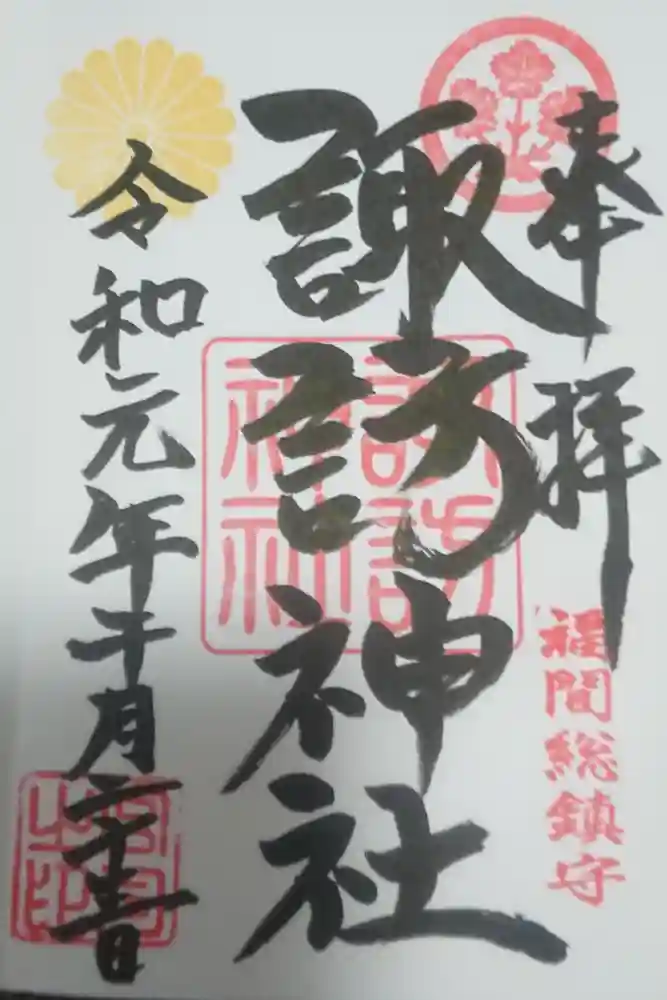 奉拝
福間総鎮守
諏訪神社
諏訪神社
令和元年
月
日
宮司之印